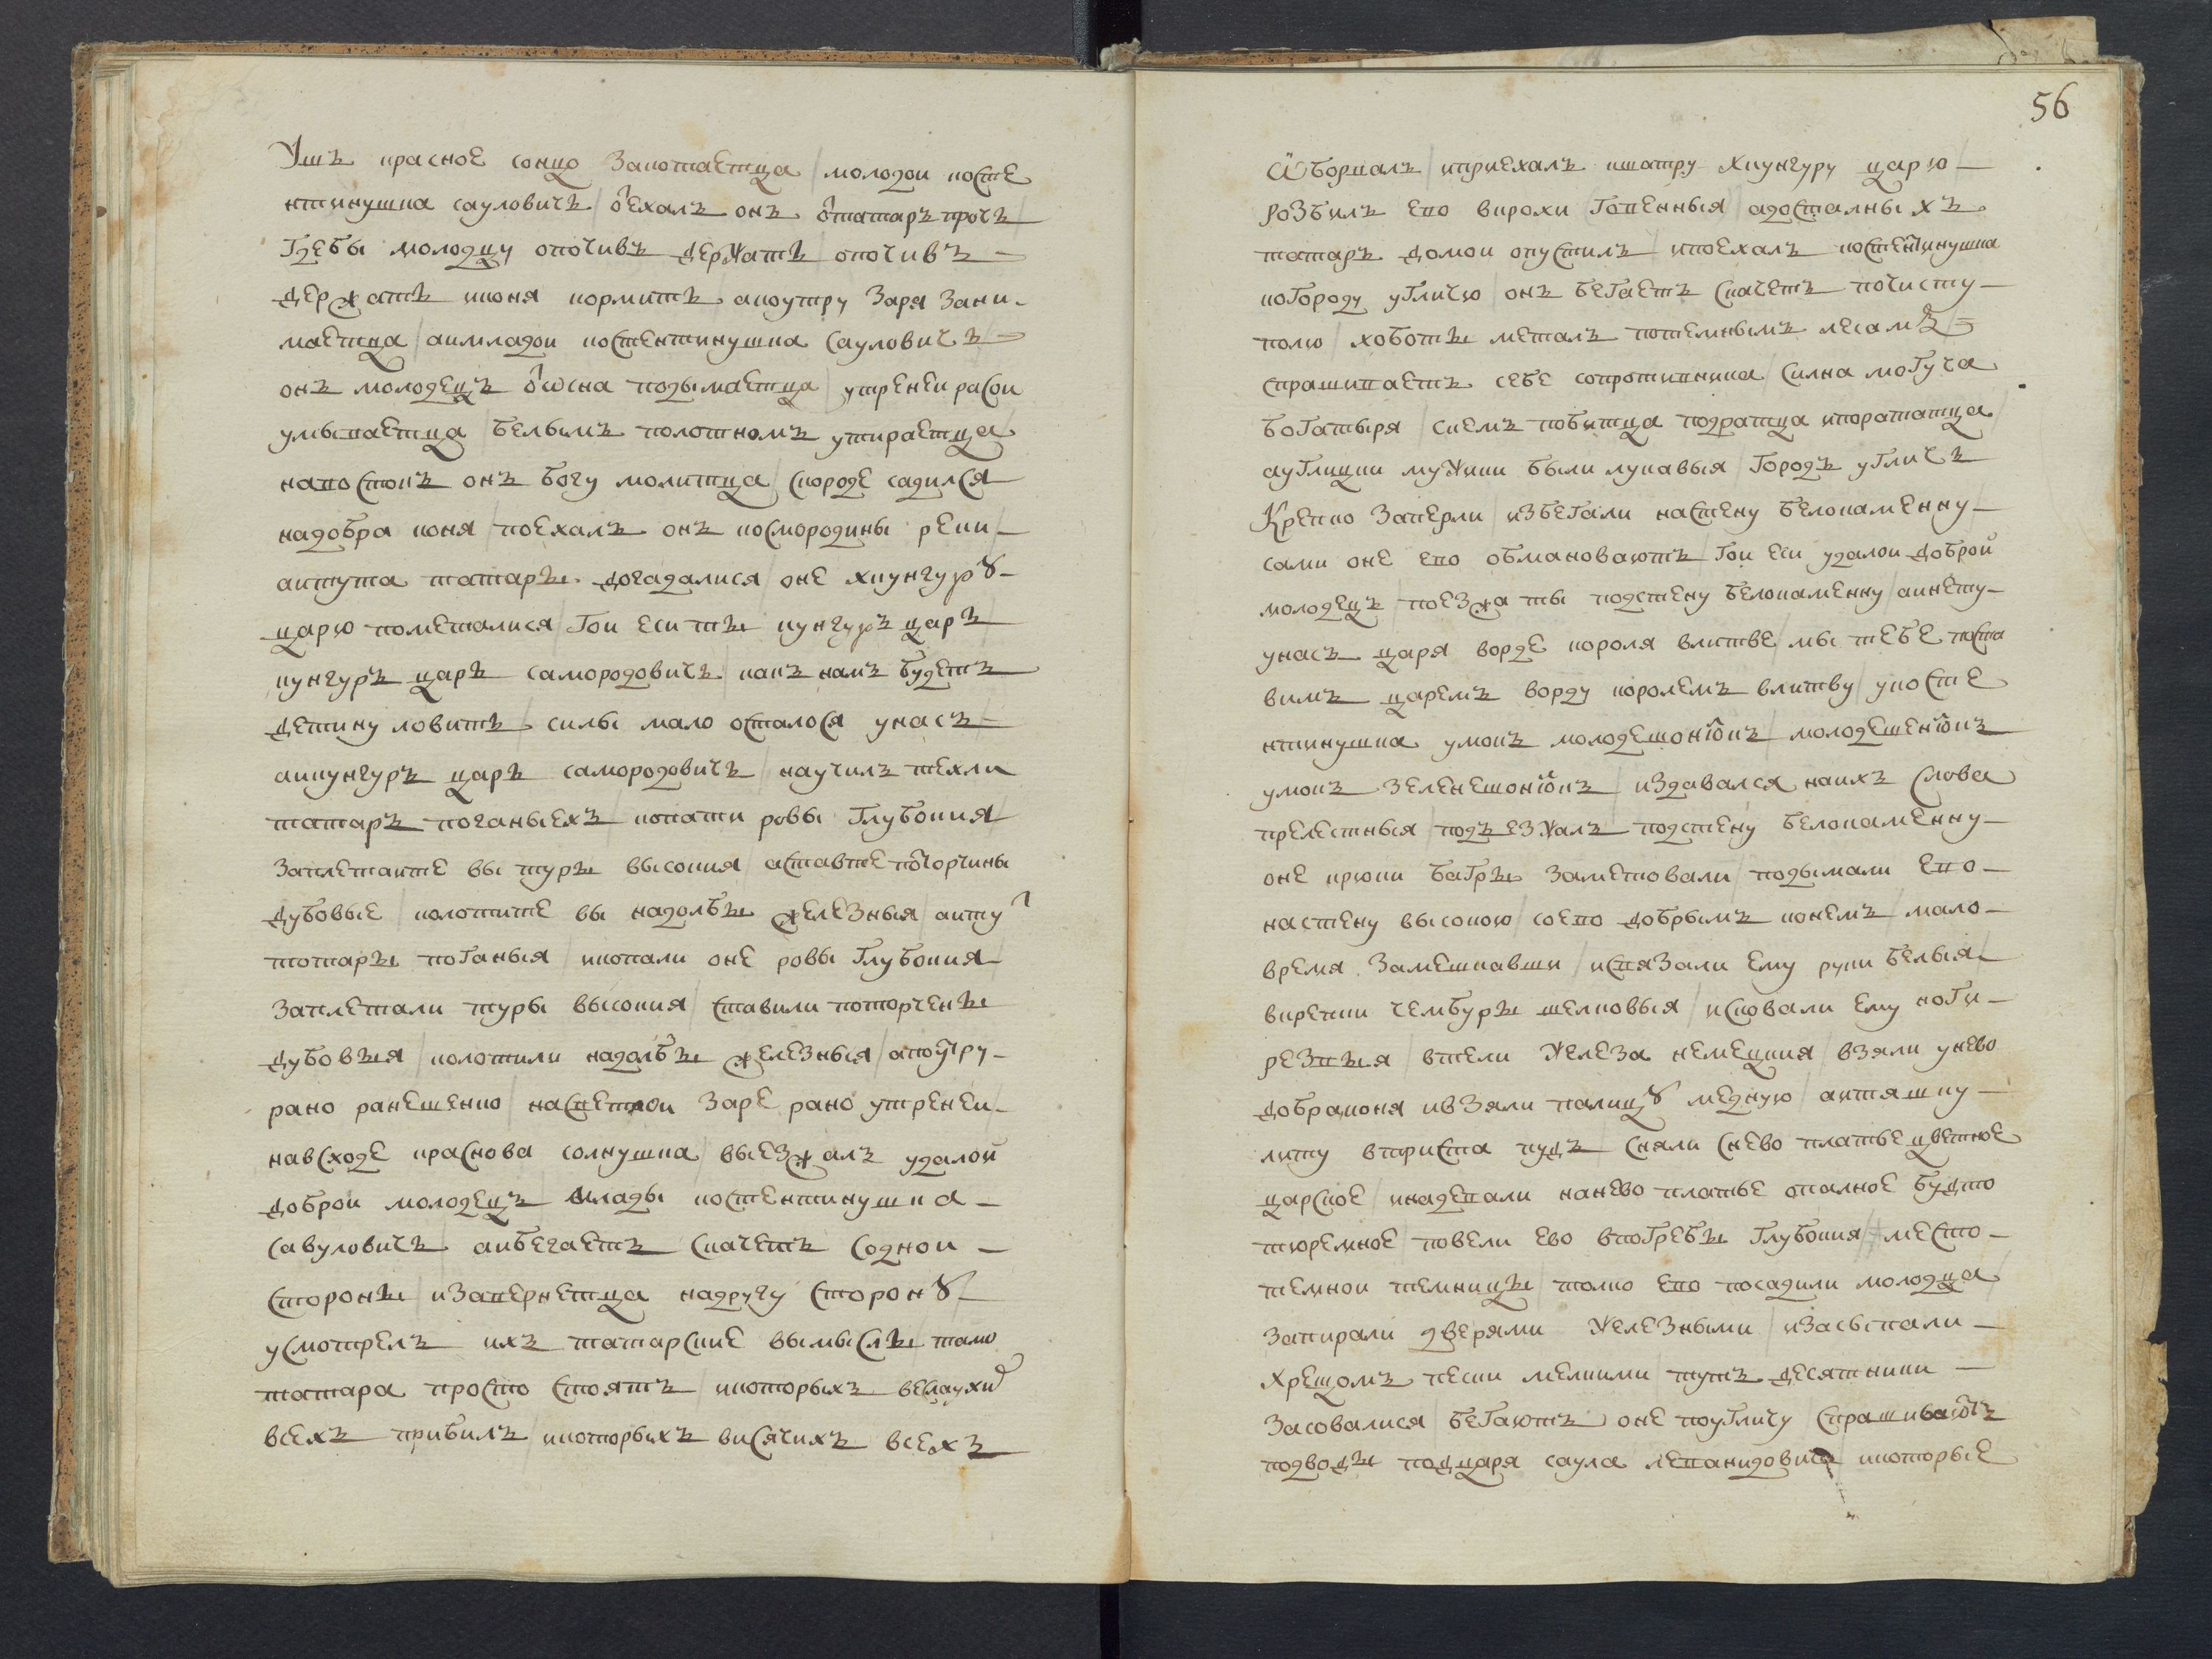 Ушъ красное сонцо закотаетца / молодои косте
нтинушка сауловичь / о̑ехалъ онъ о̑татаръ прочь
где бы молодцу опочивъ держать опочивъ =
держать и коня кормить а поутру заря зани-
маетца / а и младои костентинушка сауловичь =
онъ молодецъ о̑ѡсна подымаетца / утренеи расои
умываетца / белымъ полотномъ утираетца
на востокъ онъ богу молитца / скоро де садился
на добра коня / поехалъ онъ ко смородины реки —
а и тута татары догадалися / оне х кунгурꙋ —
царю пометалися / гои еси ты кунгуръ царь
кунгуръ царь самородовичь какъ намъ будетъ
детину ловить / силы мало осталося у насъ —
а и кунгуръ царь самородовичь / научилъ техли
татаръ поганыехъ копати ровы глубокия
заплетаите вы туры высокия / а ставте поторчины
дубовые / колотите вы надолбы железныя / а и ту
тотары поганыя / и копали оне ровы глубокия
заплетали туры высокия / ставили поторчены
дубовыя / колотили надолбы железныя / а поутру —
рано ранешенко / на светлои заре рано утренеи —
на всходе краснова солнушка / выезжалъ удалои̑
доброи молодецъ млады костентинушка —
савуловичь а и бегаетъ скачетъ с однои —
стороны / и завернетца на другу сторонꙋ —
усмотрелъ ихъ татарские вымыслы тамо
татара просто стоятъ / и которыхъ вислаухи
всехъ прибилъ / и которыхъ висячихъ всехъ
56
ѿборвалъ / и приехалъ к шатру х кунгуру царю —
розбилъ ево в крохи говенныя / а досталныхъ
татаръ домои опустилъ / и поехалъ костентинушка
ко городу угличю / онъ бегаетъ скачетъ по чисту —
полю / хоботы металъ по темнымъ лесамъ =
спрашиваетъ себе сопротивника / силна могуча
богатыря / с кемъ побитца подратца и поратитца /
а углицки мужики были лукавыя / городъ угличь
крепко заперли / и збегали на стену белокаменну —
сами оне ево обмановаютъ / гои еси удалои доброи̑
молодецъ / поезжа ты под стену белокаменну / а и нету —
у насъ царя в орде короля в литве / мы тебе поста
вимъ царемъ в орду королемъ в литву / у косте
нтинушка умокъ молодешонюкъ / молодешенюкъ
умокъ зеленешонюкъ / и здавался на ихъ слова
прелестныя / подъезжалъ под стену белокаменну —
оне крюки багры заметовали / подымали ево —
на стену высокою / со ево добрымъ конемъ / мало —
время замешкавши / и связали ему руки белыя
в крепки чембуры шелковыя / и сковали ему ноги —
резвыя / в тели железа немецкия / взяли у нево
добра коня и взяли палицꙋ медную / а и тяшку —
литу в триста пудъ / сняли с нево платье цветное
царское / и надевали на нево платье опалное будто
тюремное / повели ево в погребы глубокия / место —
темнои темницы / толко ево посадили молодца /
запирали дверями железными / и засыпали —
хрещомъ пески мелкими тутъ десятники —
засовалися / бегаютъ оне по угличу / спрашиваютъ
подводы под царя саула леванидовича / и которые